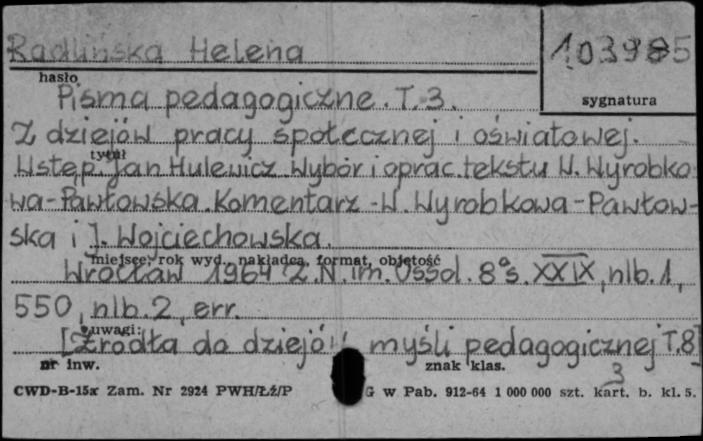 Radlińska Helena
103985
hasło
sygnatura
Pisma pedagogiczne. T.3.
Z dziejów pracy społecznej i oświatowej.
tytuł
Wstęp. Jan Hulewicz. Wybór i oprac. tekstu W. Wyrobko
wa-Pawłowska. Komentarz - W. Wyrobkowa-Pawłow-
ska i J. Wojciechowska.
miejsce, rok wyd., nakładca, format, objętość
Wrocław 1964 Z.N. im. Ossol. 8° s. XXIX, nlb. 1,
550, nlb. 2, err.
uwagi:
[Źródła do dziejów myśli pedagogicznej T.8]
nr inw.
znak klas.
3
CWD-B-15x Zam. Nr 2924 PWH/Łź/P
G w Pab. 912-64 1 000 000 szt. kart. b. kl. 5.